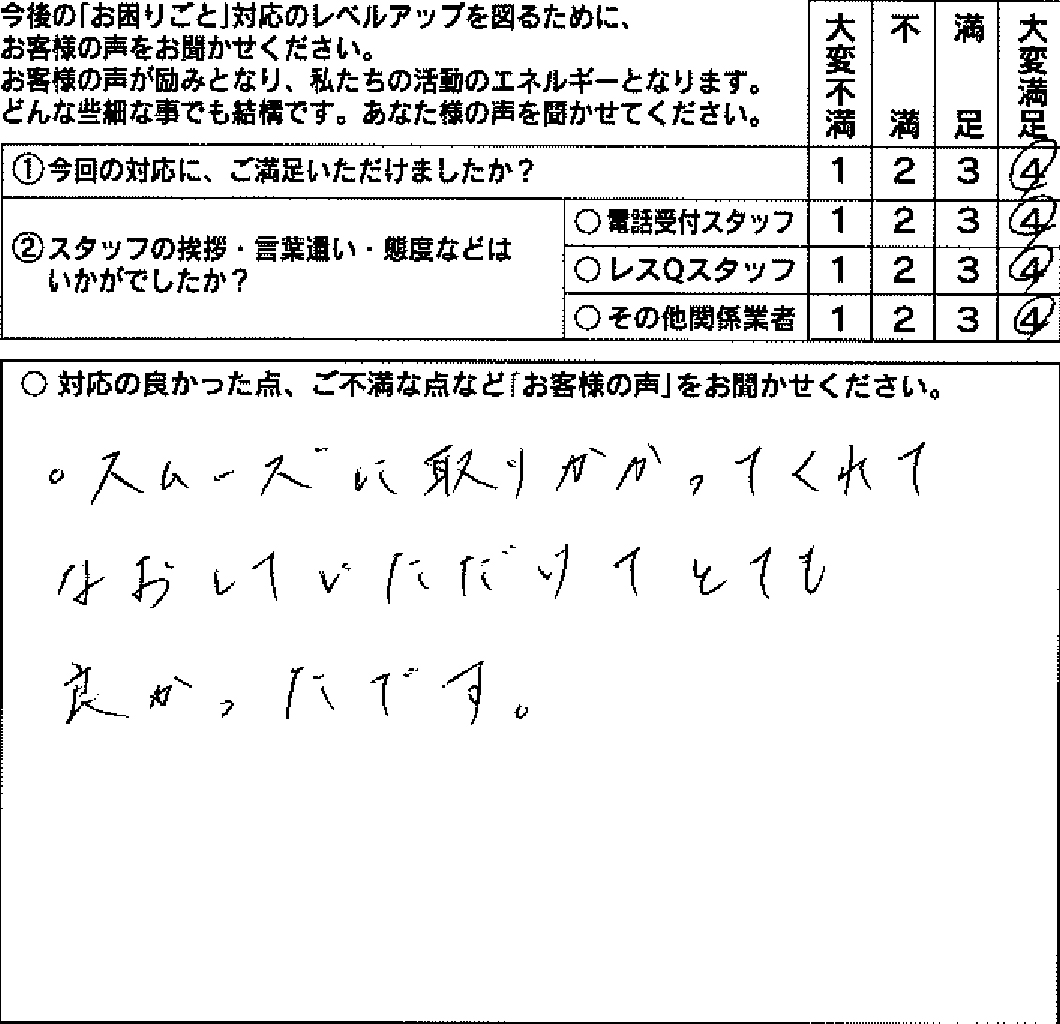 今後の「お困りごと」対応のレベルアップを図るために、
お客様の声をお聞かせください。
お客様の声が励みとなり、私たちの活動のエネルギーとなります。
どんな些細な事でも結構です。あなた様の声を聞かせてください。
大変不満 不満 満足 大変満足
①今回の対応に、ご満足いただけましたか? 1 2 3 4
②スタッフの挨拶・言葉遣い・態度などは
いかがでしたか?
○電話受付スタッフ 1 2 3 4
○レスQスタッフ 1 2 3 4
○その他関係業者 1 2 3 4
○対応の良かった点、ご不満な点など「お客様の声」をお聞かせください。
○スムーズに取りかかってくれて
なおしていただけてとても
良かったです。